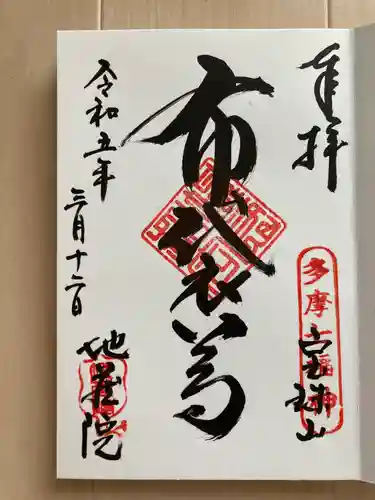 奉拝
多摩七福神
宝珠山
布袋尊
令和五年
三月十二日
地蔵院